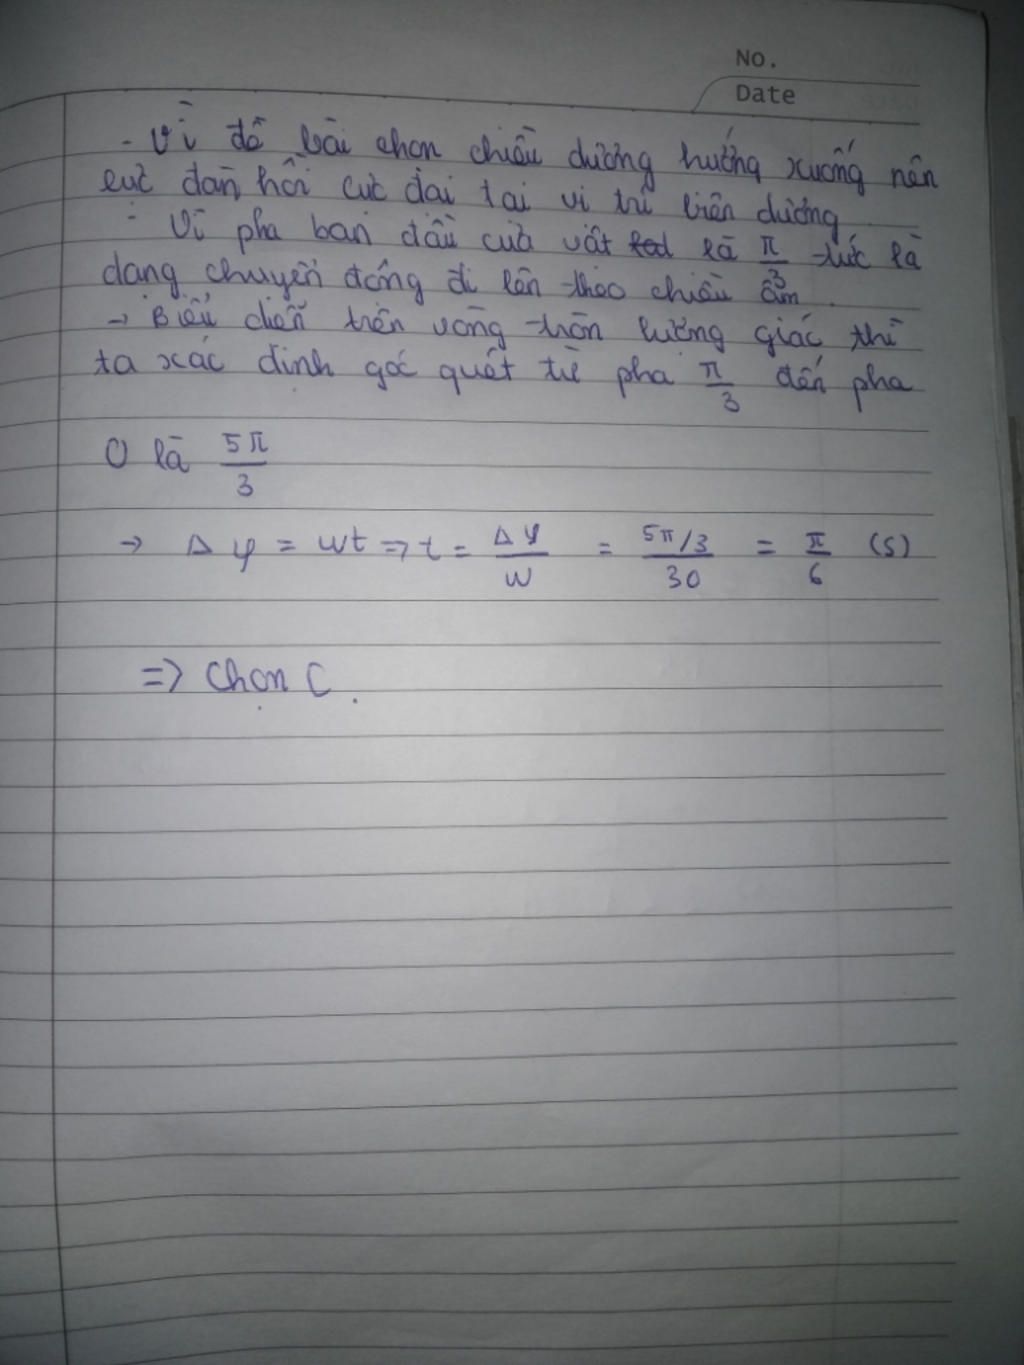 No.
Date
- Vì đề bài chọn chiều dương hướng xuống nên
lực đàn hồi cực đại tại vị trí biên dương
- Vì pha ban đầu của vật là π/3 tức là
đang chuyển động đi lên theo chiều âm.
→ Biểu diễn trên vòng tròn lượng giác thì
ta xác định góc quét từ pha π/3 đến pha
0 là 5π/3
→ Δφ = ωt => t = Δφ/ω = 5π/3/30 = π/6 (s)
=> Chọn C.